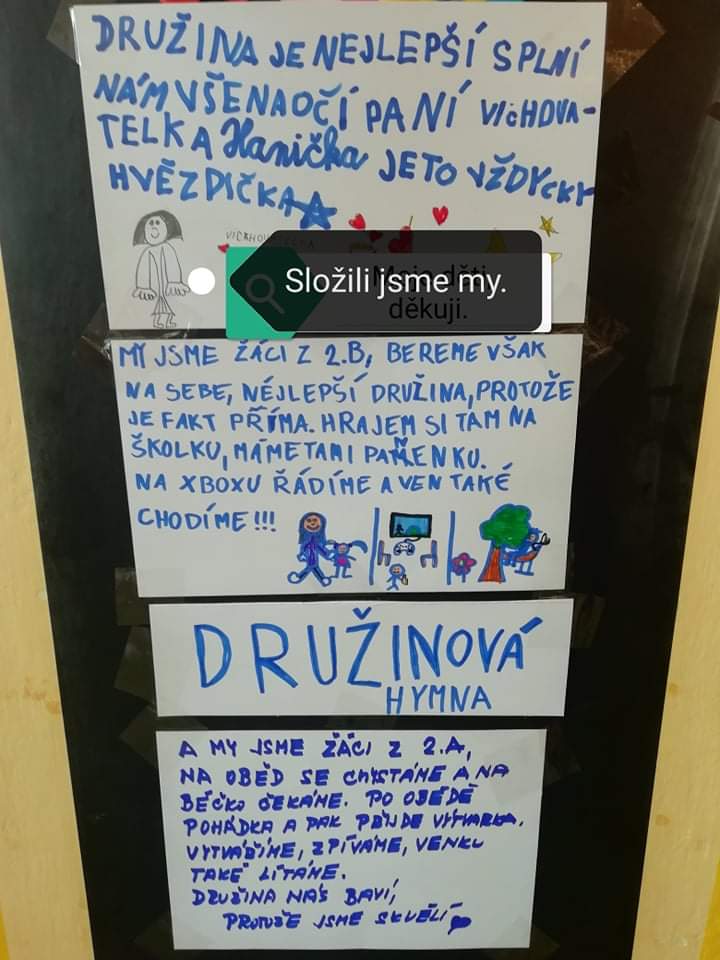 DRUŽINA JE NEJLEPŠÍ SPLNÍ
NÁM VŠENAOČÍ PANÍ VICHOVA-
TELKA Hanička JETO VŽDYCKY
HVĚZDIČKA
Složili jsme my.
děkuji.
MY JSME ŽÁCI Z 2.B, BEREME VŠAK
NA SEBE, NEJLEPŠÍ DRUŽINA, PROTOŽE
JE FAKT PŘÍMA. HRAJEM SI TAM NA
ŠKOLKU, MÁMETAMI PAŇENKU.
NA XBOXU ŘÁDÍME A VEN TAKÉ
CHODÍME!!!
DRUŽINOVÁ
HYMNA
A MY JSME ŽÁCI Z 2.A,
NA OBĚD SE CHYSTÁME A NA
BÉČKO ČEKÁME. PO OBĚDĚ
POHÁDKA A PAK PŘIJDE VÝTVARKA.
VYTVÁŘÍME, ZPÍVÁME, VENKU
TAKÉ LÍTÁME.
DRUŽINA NÁS BAVÍ,
PROTOŽE JSME SKVĚLÍ